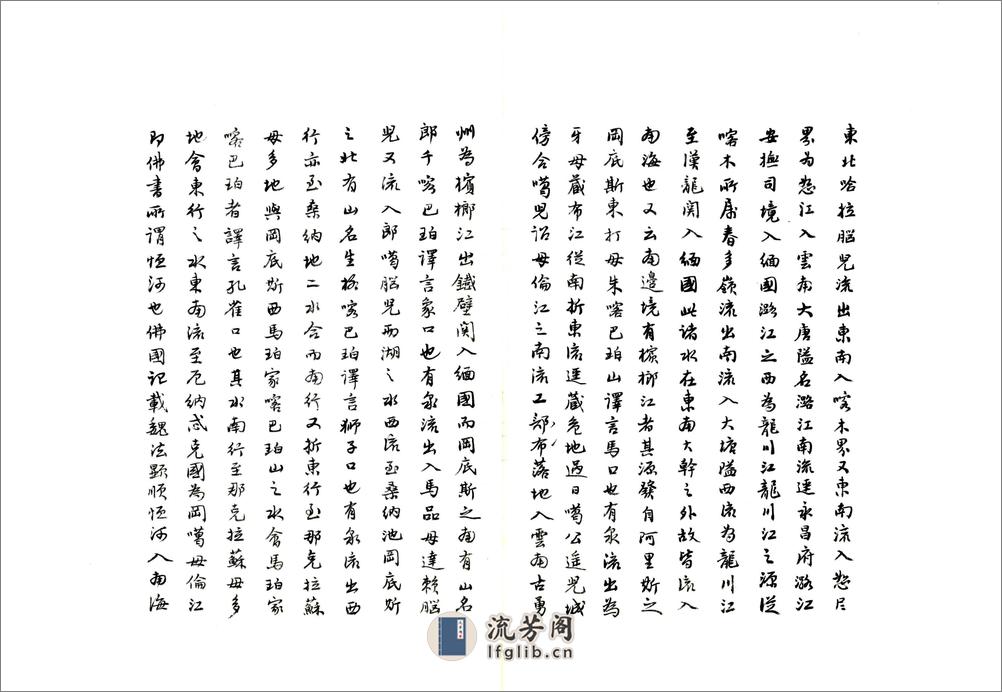 東北哈拉腦兒流出東南入喀木界又東南流入怒尺
界為怒江入雲南大唐隘名潞江南流逕永昌府潞江
安撫司境入緬國潞江之西為龍川江龍川江之源從
喀木所屬春多嶺流出南流入大塘隘西流為龍川江
至漢龍関入緬國此諸水在東南大幹之外故皆流入
南海也又云南邊境有檳榔江者其源發自阿里斯之
岡底斯東打母朱喀巴珀山譯言馬口也有泉流出為
牙母藏布江從南折東流逕藏危地過日噶公逕兒城
傍合噶兒詔母倫江之南流工部布落地入雲南古勇
州為檳榔江出鐵壁関入緬國而岡底斯之南有山名
郎千喀巴珀譯言象口也有泉流出入馬品母達賴腦
兒又流入郎噶腦兒兩湖之水西流至桑納池岡底斯
之北有山名生格喀巴珀譯言獅子口也有泉流出西
行亦至桑納地二水合而南行又折東行至那克拉蘇
母多地與岡底斯西馬珀家喀巴珀山之水會馬珀家
喀巴珀者譯言孔雀口也其水南行至那克拉蘇母多
地會東行之水東南流至厄納忒克國為岡噶母倫江
即佛書所謂恒河也佛國記載魏法顯順恒河入南海
流芳阁
lfglib.cn